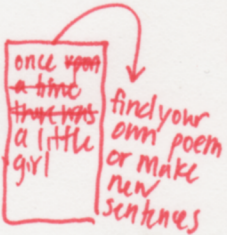 once upon
a time
there was
a little
girl
find your
own poem
or make
new
sentences